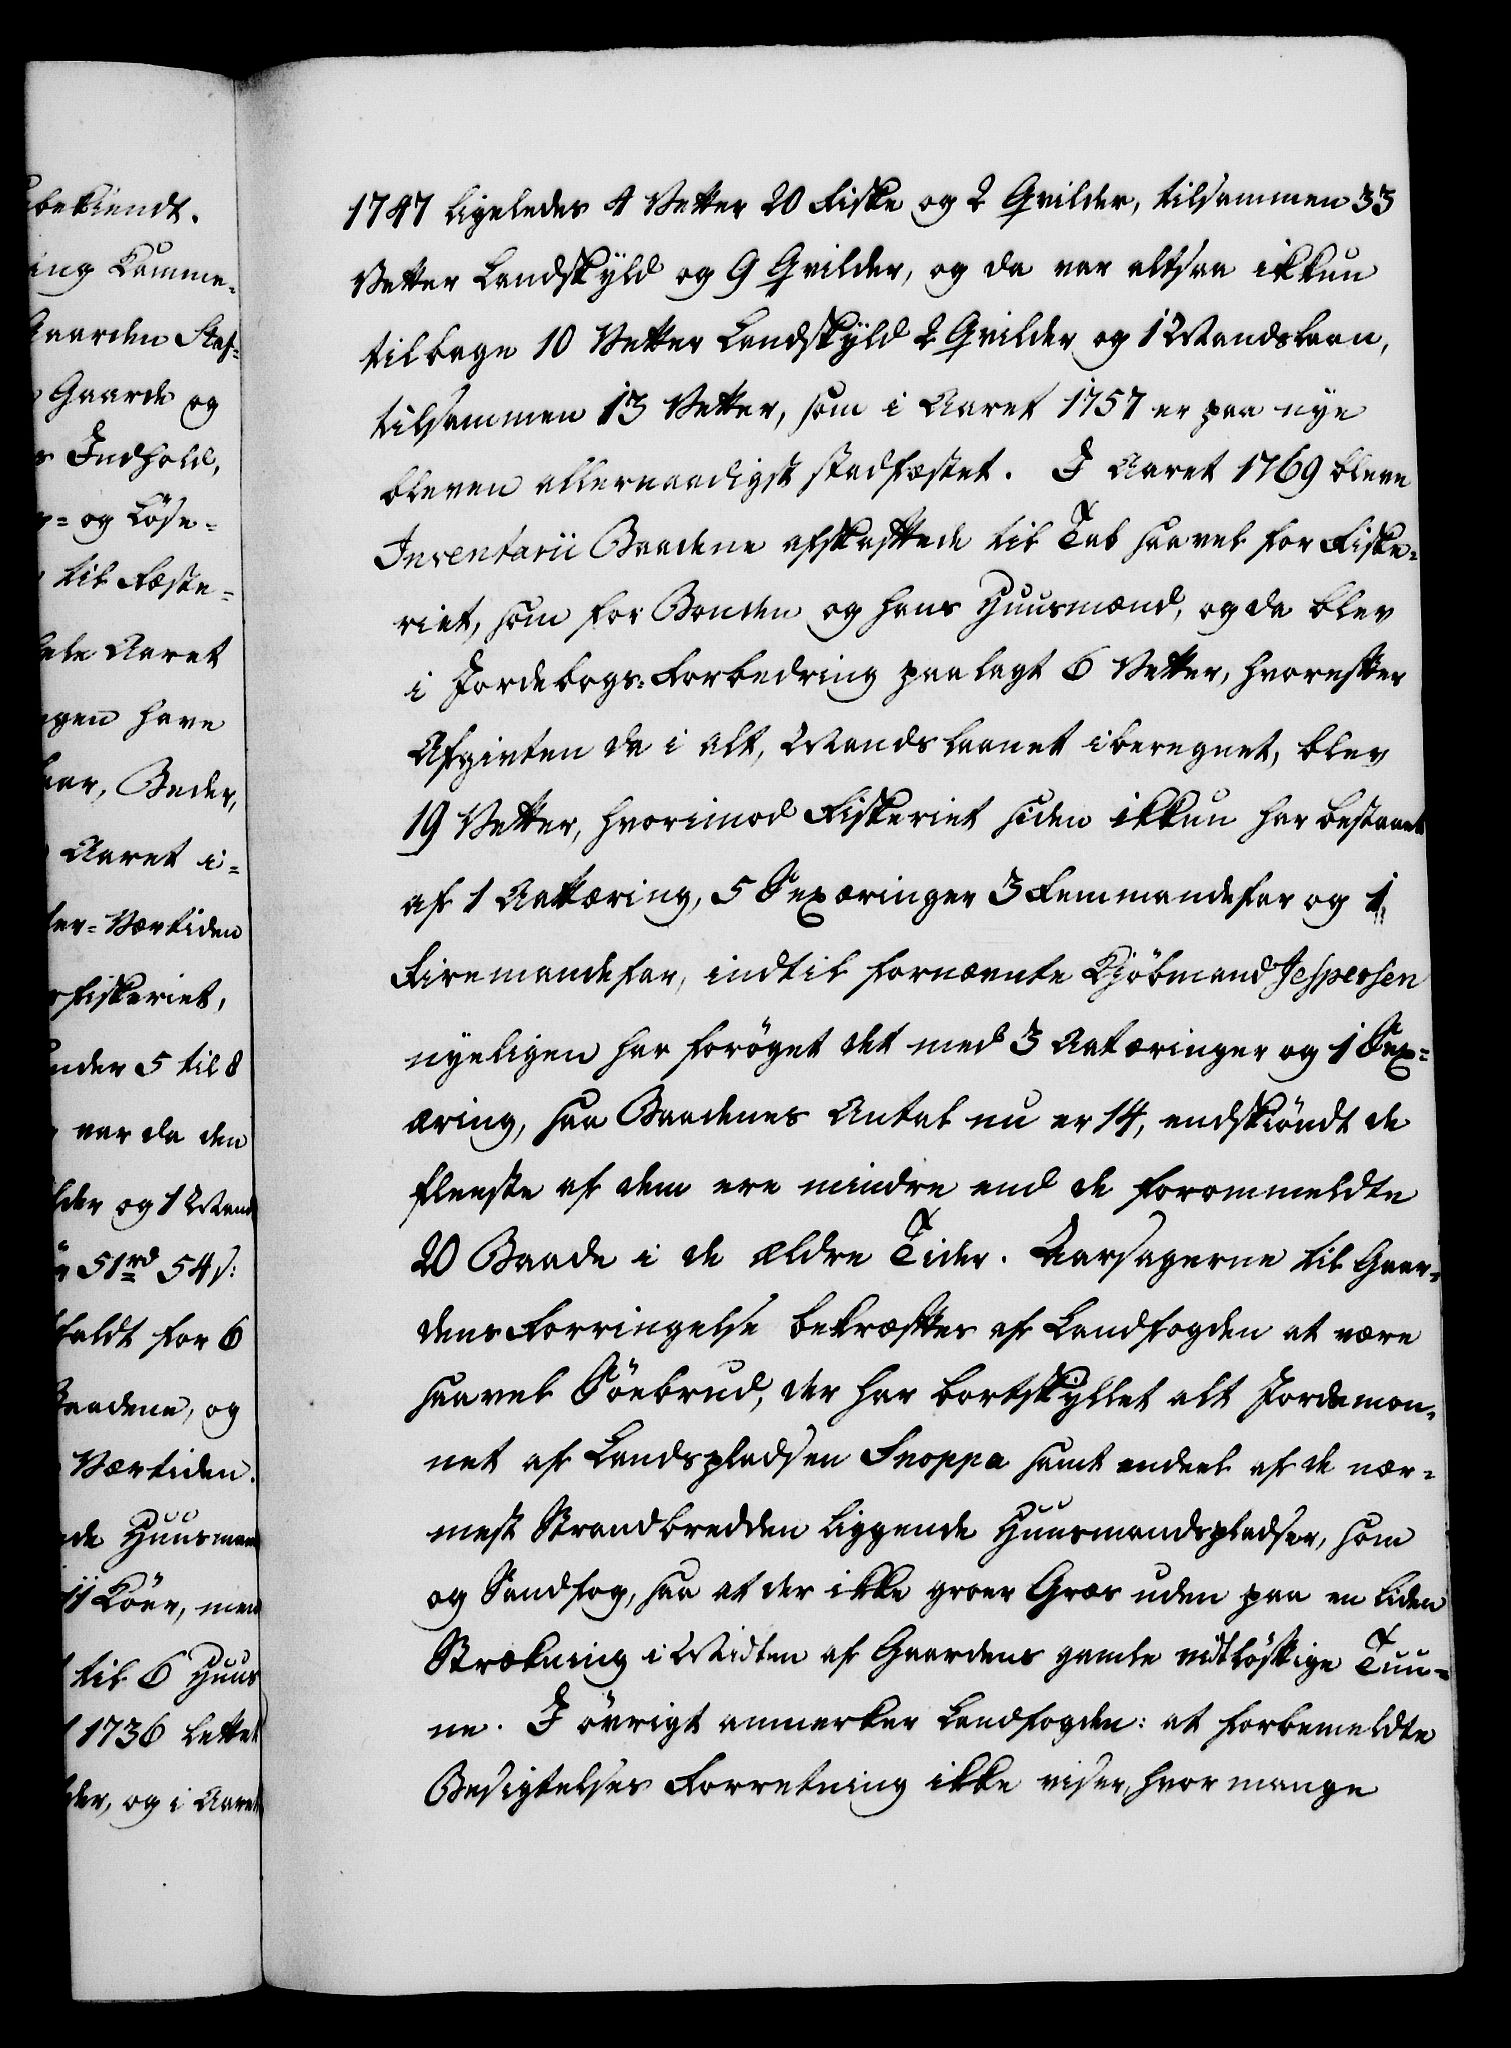 ubekiendt.
ing Kamme-
Gaarden Stap-
Gaarde og
s Indhold,
= og Löse-
til Fæste-
hele Aaret
ngen have
aar, Beder,
Aaret i-
ter-Værtiden
rfiskeriet,
under 5 til 8
var da den
lder og 1 Mand
51 rd 54 s:
faldt for 6
Baadene, og
Værtiden.
de Huusmænd
11 Köer, men
til 6 Huus
1736 lettet
der, og i Aaret
1747 ligeledes 4 Vetter 20 Fiske og 2 Qvilder, tilsammen 33
Vetter Landskyld og 9 Qvilder, og da var altsaa ikkun
tilbage 10 Vetter Landskyld 2 Qvilder og 1 Mandslaan,
tilsammen 13 Vetter, som i Aaret 1757 er paa nye
bleven allernaadigst stadfæstet. I Aaret 1769 bleve
Inventarii Baadene afskaffede til Tab saavel for Fiske-
riet, som for Bonden og hans Huusmænd, og da blev
i Jordebogs-Forbedring paalagt 6 Vetter, hvorefter
Afgivten da i alt, Mandslaanet iberegnet, blev
19 Vetter, hvorimod Fiskeriet siden ikkun har bestaaet
af 1 Aattæring, 5 Sexæringer 3 Femmandefar og 1
Firemandefar, indtil fornævnte Kjöbmand Jespersen
nyeligen har foröget det med 3 Aatæringer og 1 Sex-
æring, saa Baadenes Antal nu er 14, endskiöndt de
fleeste af dem ere mindre end de forommeldte
20 Baade i de ældre Tider. Aarsagerne til Gaar-
dens Forringelse bekræftes af Landfogden at være
saavel Söebrud, der har bortskyllet alt Jordsmon-
net af Landspladsen Snoppa samt endeel af de nær-
mest Strandbredden liggende Huusmandspladser, som
og Sandfog, saa at der ikke groer Græs uden paa en liden
Strækning i Midten af Gaardens gamle vidtlöftige Tuu-
ne. I övrigt anmerker Landfogden: at forbemeldte
Besigtelses Forretning ikke viser, hvor mange